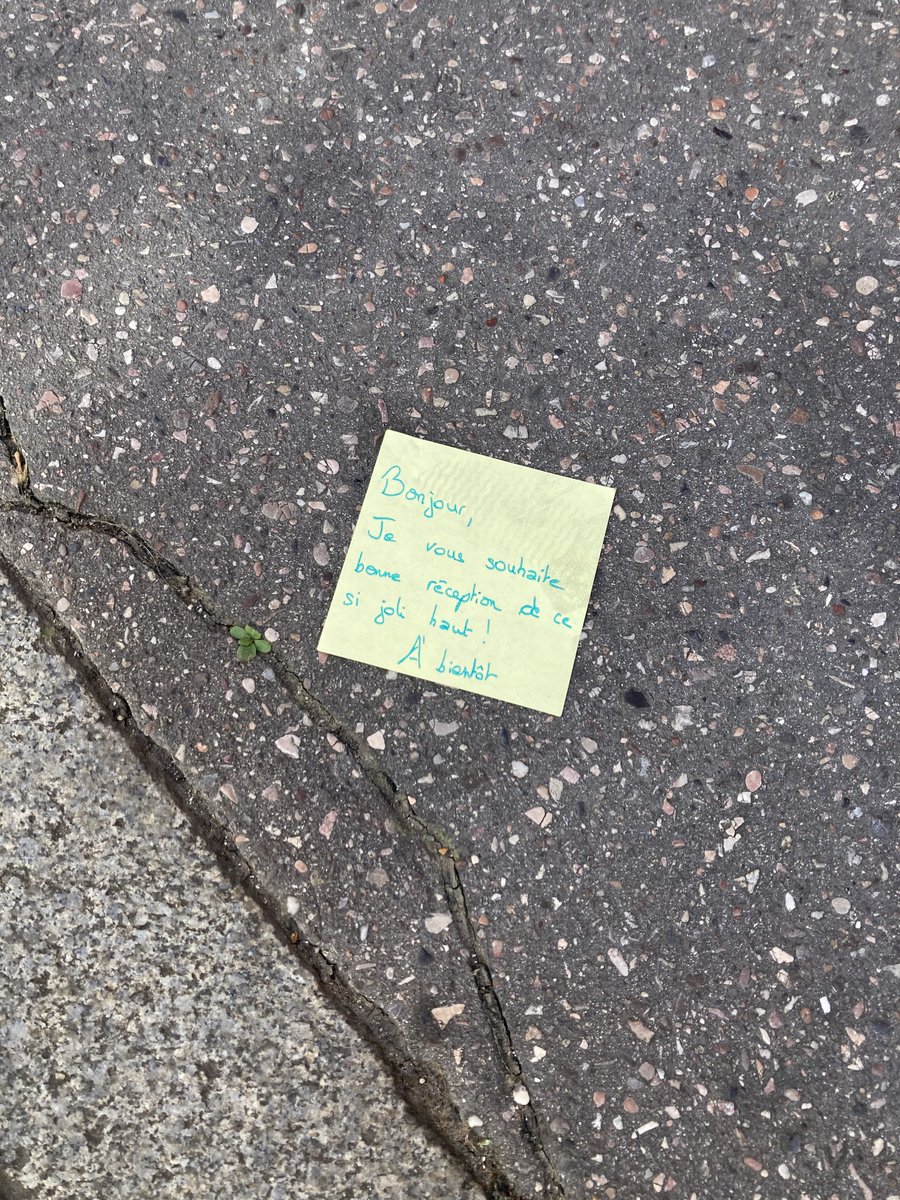 Bonjour,
Je vous souhaite
bonne réception de ce
si joli haut !
À bientôt